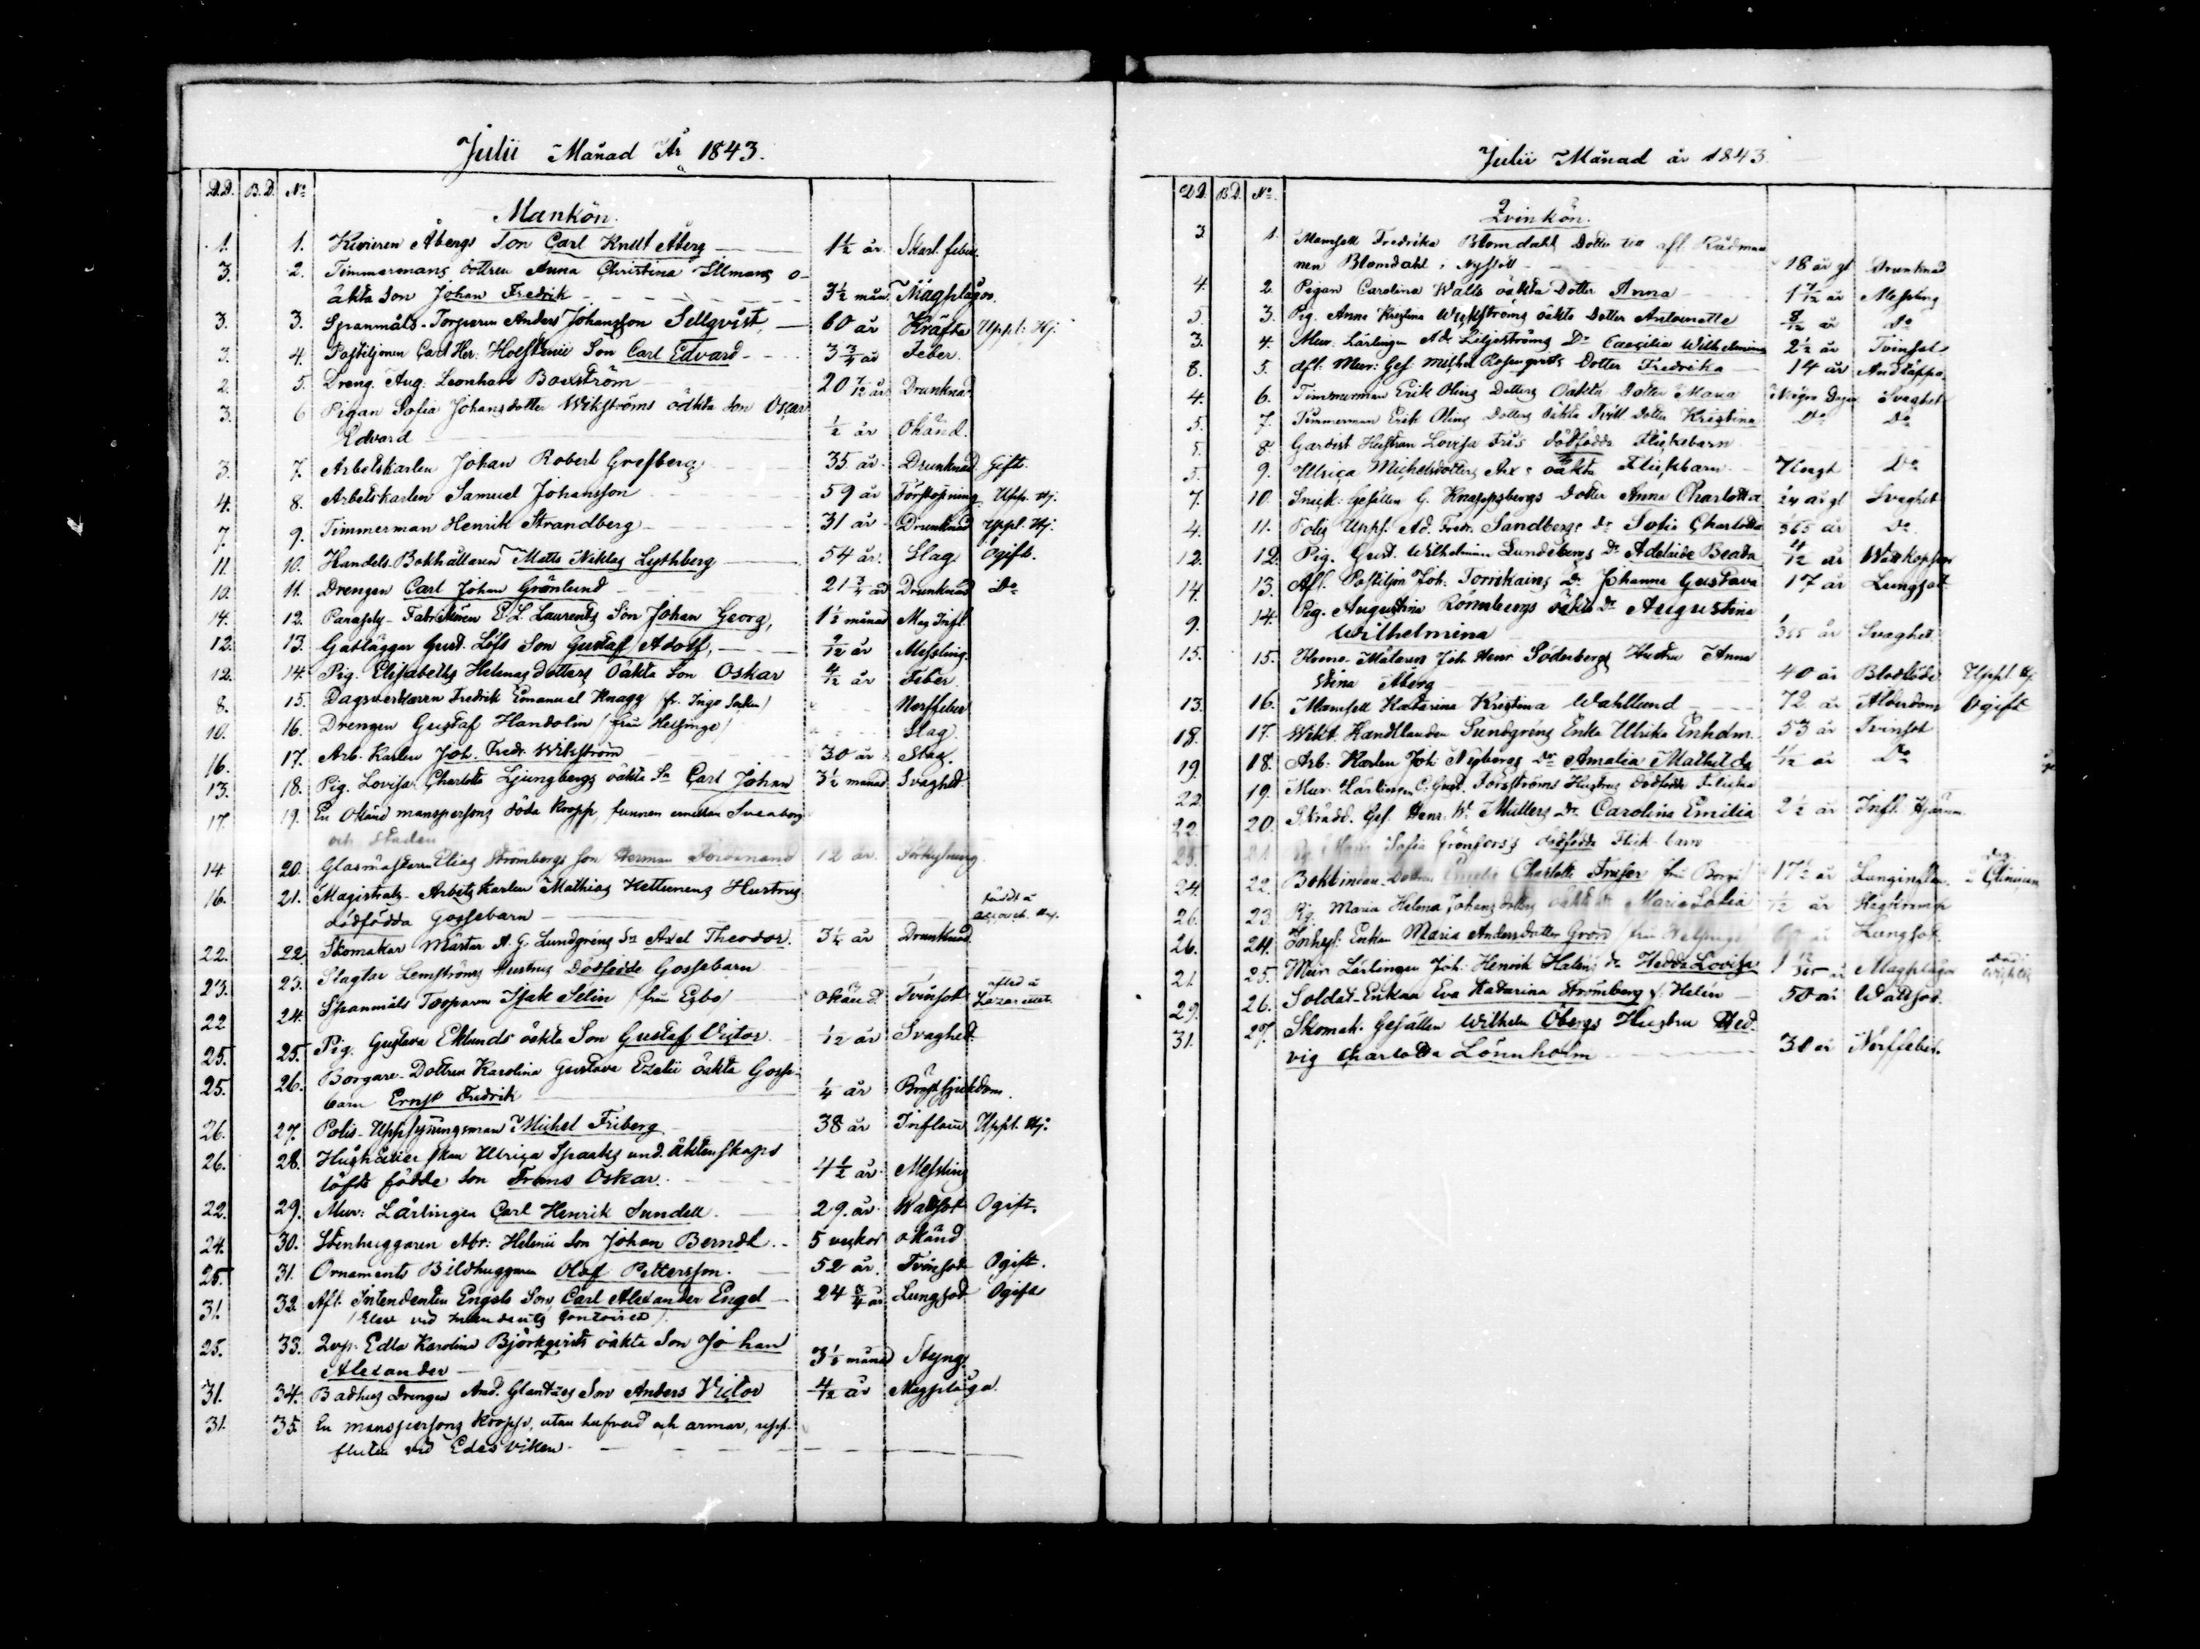 Julii Månad År 1843.
D.D. B.D. No
Mankön.
1. 1. Åbergs Son Carl Knut Åberg 1½ år Skarl. feber.
3. 2. Timmermans dottren Anna Christina o-
äkta Son Johan Fredrik 3½ mån. Magplågor.
3. 3. Spanmåls-Torparen Anders Johansson Sellqvist, 60 år Kräfta Uppl. Hj.
3. 4. Postiljonen Carl Her. Son Carl Edvard 3¾ år Feber.
2. 5. Dreng. Aug. Leonhard Boxström 20 7/12 år Drunknad
3. 6 Pigan Sofia Johansdotter Wikströms oäkta Son Oscar
Edvard ½ år Okänd.
3. 7. Arbetskarlen Johan Robert Grefberg 35 år Drunknad Gift.
4. 8. Arbetskarlen Samuel Johansson 59 år Förstoppning Upp. Hj.
7. 9. Timmerman Henrik Strandberg 31 år Drunknad Uppl. Hj.
11 10. Handels Bokhållaren Matts Niklas Lythberg 54 år. Slag Ogift.
10. 11. Drengen Carl Johan Grönlund 21¾ år Drunknad Do
14. 12. Fabrikören P. L. Laurents Son Johan Georg, 1½ månad Mag Infl
12. 13. Gatläggar Gust. Löfs Son Gustaf Adolf, 9/12 år Messling.
12. 14. Pig. Elisabeths Helenas dotters Oäkta Son Oskar 4/12 år Feber.
8. 15. Fredrik Emanuel Knagg (fr. Ingo Socken) Nerffeber
10. 16. Drengen Gustaf Handolin (från Helsinge) Slag.
16. 17. Arb. Karlen Joh. Fredr. Wikström 30 år Slag.
13. 18. Pig. Lovisa Charlotta Ljungbergs oäkta Sn Carl Johan 3½ månad Svaghet.
17. 19. En Okänd manspersons döda kropp, funnen emellan Sveaborg
och Staden
14. 20. Glasmästaren Elias Strömbergs Son Herman Ferdinand 12 år.
16. 21. Magistrats-Arbetskarlen Mathias Hettunens Hustrus
dödfödda Gossebarn född å
22. 22. Skomakar Mästar A. G. Lundgréns Sn Axel Theodor. 3¼ år Drunknad.
23. 23. Slagtar Lemströms Hustrus Dödfödde Gossebarn
22 24. Spanmåls Torparen Isak Selin (från Esbo) okänd Tvinsot afled å Lazarettet.
25. 25. Pig. Gustava Eklunds oäkta Son Gustaf Victor. 1/12 år Svaghet.
25. 26. Borgare-Dottren Karolina Gustava Ezelii oäkta Gosse-
barn Ernst Fredrik ¼ år Bröstsjukdom.
26. 27. Polis-Uppsyningsman Michel Friberg 38 år Inflam Uppl. Hj.
26. 28. Ulrica Spaaks und. äktenskaps
löfte födde Son Frans Oskar. 4½ år. Messling
22. 29. Mur: Lärlingen Carl Henrik Sundell. 29. år Wattsot Ogift.
24. 30. Stenhuggaren Abr: Helenii Son Johan Berndt. 5 veckor okänd
25. 31. Ornaments Bildhuggaren Olof Pettersson. 52 år. Tvinsot Ogift.
31. 32. Afl. Intendenten Engels Son, Carl Alexander Engel 24¾ år Lungsot Ogift
(Elev vid Intendents Contoiret)
25. 33. Edla Karolina Björkqvists oäkta Son Johan
Alexander 3½ månad Styng
31. 34. Badhus Drengen And. Son Anders Victor 4/12 år Magplåga.
31. 35. En manspersons kropp, utan hufvud och armar, upp-
fluten vid Edesviken.
Julii Månad år 1843.
D.D. B.D. No
Qvinkön.
3. 1. Mamsell Fredrika Blomdahl, Dotter till afl. Rådman
nen Blomdahl i Nystad 18 år gl Drunknad
4. 2. Pigan Carolina Walls oäkta Dotter Anna 1 7/12 år Messling
5. 3. Pig. Anna Kristina Wickströms oäkta Dotter Antoinette 8/12 år Do
3. 4. Mur. Lärlingen Ad. Liljeströms Dr Caecilia Wilhelmina 2½ år Tvinsot
8. 5. Afl. Mur: Ges. Michel Rosenqvists Dotter Fredrika 14 år Andtäppa.
4. 6. Timmerman Erik Olins Dotters Oäkta Dotter Maria Några Dagar Svaghet
5. 7. Timmerman Erik Olins Dotters Oäkta Tvill. Dotter Kristina Do Do
5. 8. Gardist Hustrun Lovisa Friis dödfödda Flickebarn
5. 9. Ulrica Michelsdotters Ax: oäkta Flickbarn Do
7. 10. Snick. Gesällen G. Knappsbergs Dotter Anna Charlotta 1/24 år gl Svaghet
4. 11. Polis Upps. Ad. Fredr. Sandbergs Dr Sofia Charlotta 1/365 år Do
12. 12. Pig. Gust. Wilhelmina Lundebergs Dr Adelaide Beata 4/12 år Wattkoppor
14. 13. Afl. Postiljon Joh. Torrikains Dr Johanna Gustava 17 år Lungsot
9. 14. Pig. Augustina Römbergs oäkta Dr Augustina
Wilhelmina 1/365 år Svaghet
15. 15. Målaren Joh. Henr. Söderbergs Hustru Anna
Stina Åberg 40 år Uppl. Hj.
13. 16. Mamsell Katarina Kristina Wahllund 72 år Ålderdom Ogift
18. 17. Wikt. Handlanden Sundgréns Enka Ulrika Enholm. 53 år Tvinsot
19. 18. Arb. Karlen Joh. Nybergs Dr Amalia Mathilda 1/12 år Do
22 19. Mur. Lärlingen C. Gust. Forsströms Hustrus dödfödda Flicka
22. 20. Skrädd. Ges. Henr. W. Müllers Dr Carolina Emilia 2½ år Infl. Hjernan
23. 21 Sofia Grönfors's dödfödda Flick barn
24. 22. Dottren Emelie Charlotte Fraser från Borgå 17½ år Lunginflam.
26. 23. Pig. Maria Helena Johansdotters oäkta Dr Maria Sofia 1/12 år
26. 24. Inhys. Enkan Maria Andersdotter Grönd från Helsinge Lungsot.
21. 25. Mur. Lärlingen Joh. Henrik Haléns Dr Hedda Lovisa Magplågor
29. 26. Soldat-Enkan Eva Katarina Strömberg f. Helén 50 år Wattsot.
31. 27. Skomak. Gesällen Wilhelm Öbergs Hustru Hed-
vig Charlotta Lönnholm 38 år Nerffeber.